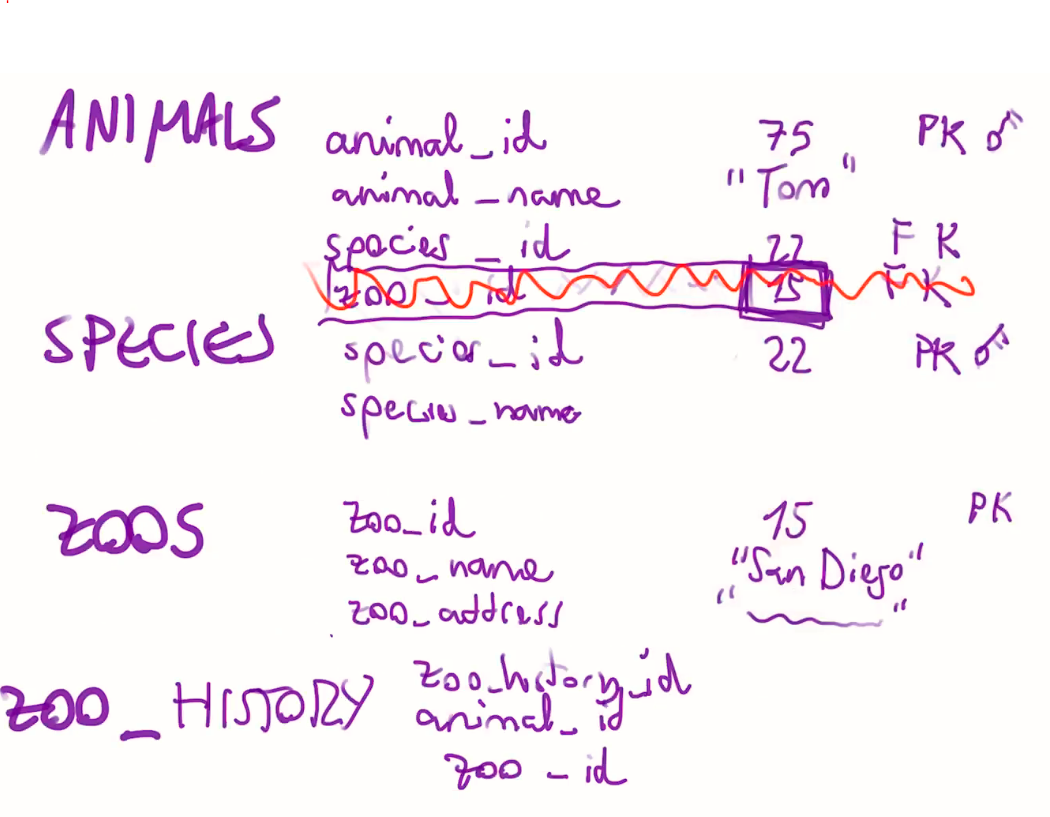 ANIMALS animal_id 75 PK
animal_name "Tom"
species_id 22 FK
zoo_id 15 FK
SPECIES species_id 22 PK
species_name
ZOOS zoo_id 15 PK
zoo_name "San Diego"
zoo_address " "
ZOO_HISTORY zoo_history_id
animal_id
zoo_id